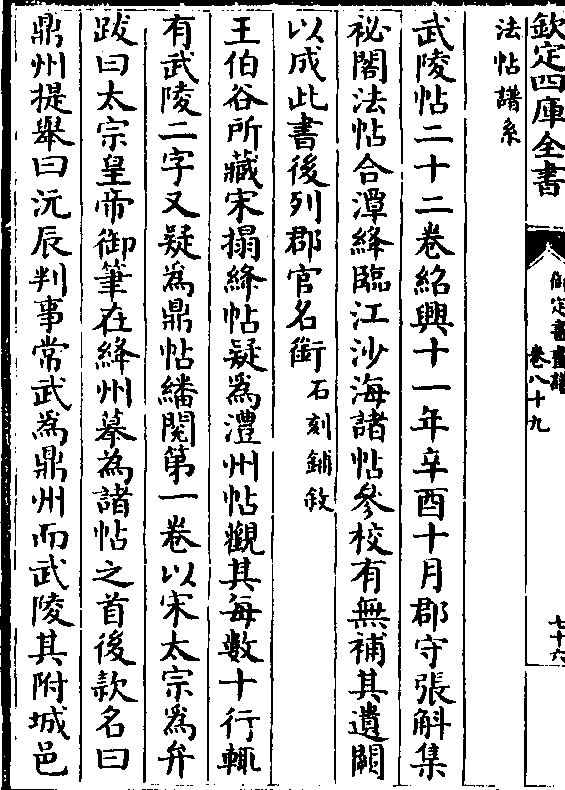 欽定四庫全書
御定書畫譜
卷八十九
七十六
法帖譜系
武陵帖二十二卷紹興十一年辛酉十月郡守張斛集
祕閣法帖合潭絳臨江沙海諸帖參校有無補其遺闕
以成此書後列郡官名銜石刻鋪敘
王伯谷所藏宋搨絳帖疑為灃州帖觀其每數十行輒
有武陵二字又疑為鼎帖繙閱第一卷以宋太宗為弁
跋曰太宗皇帝御筆在絳州摹為諸帖之首後款名曰
鼎州提舉曰沅辰判事常武為鼎州而武陵其附城邑